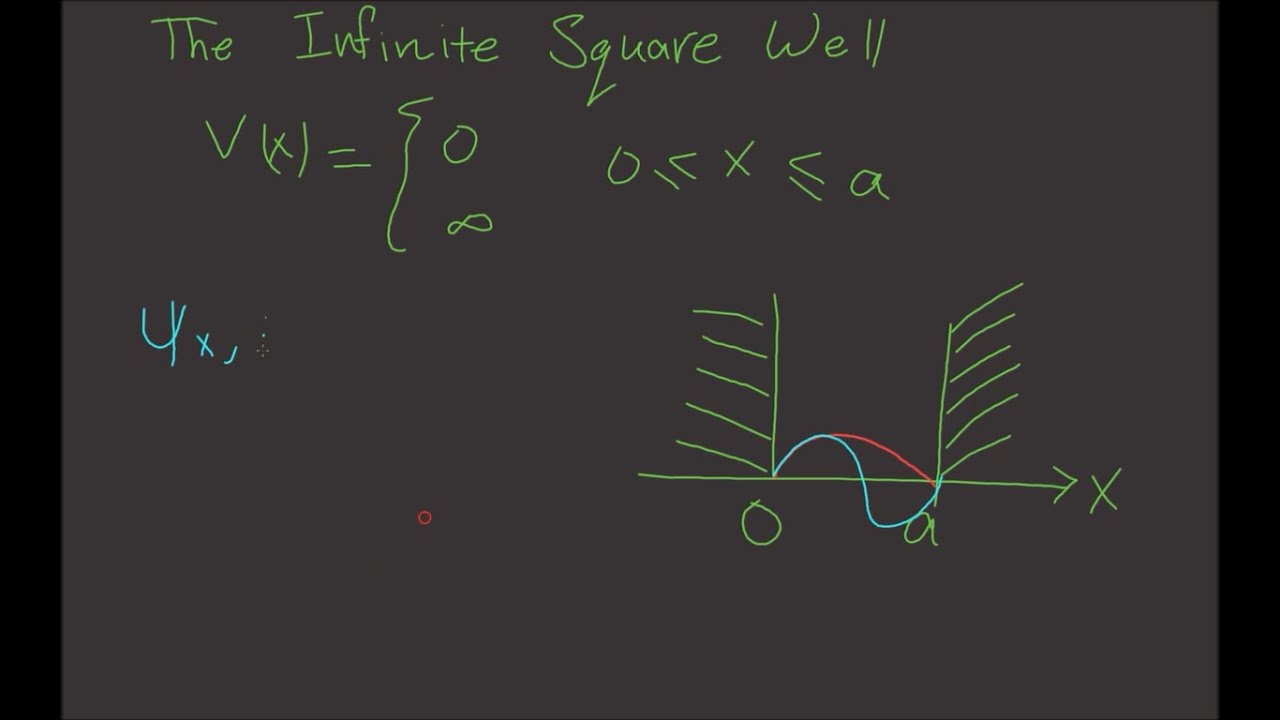 The Infinite Square Well
V(x) = { 0 0 ≤ x ≤ a
∞
ψx,
X
0 a